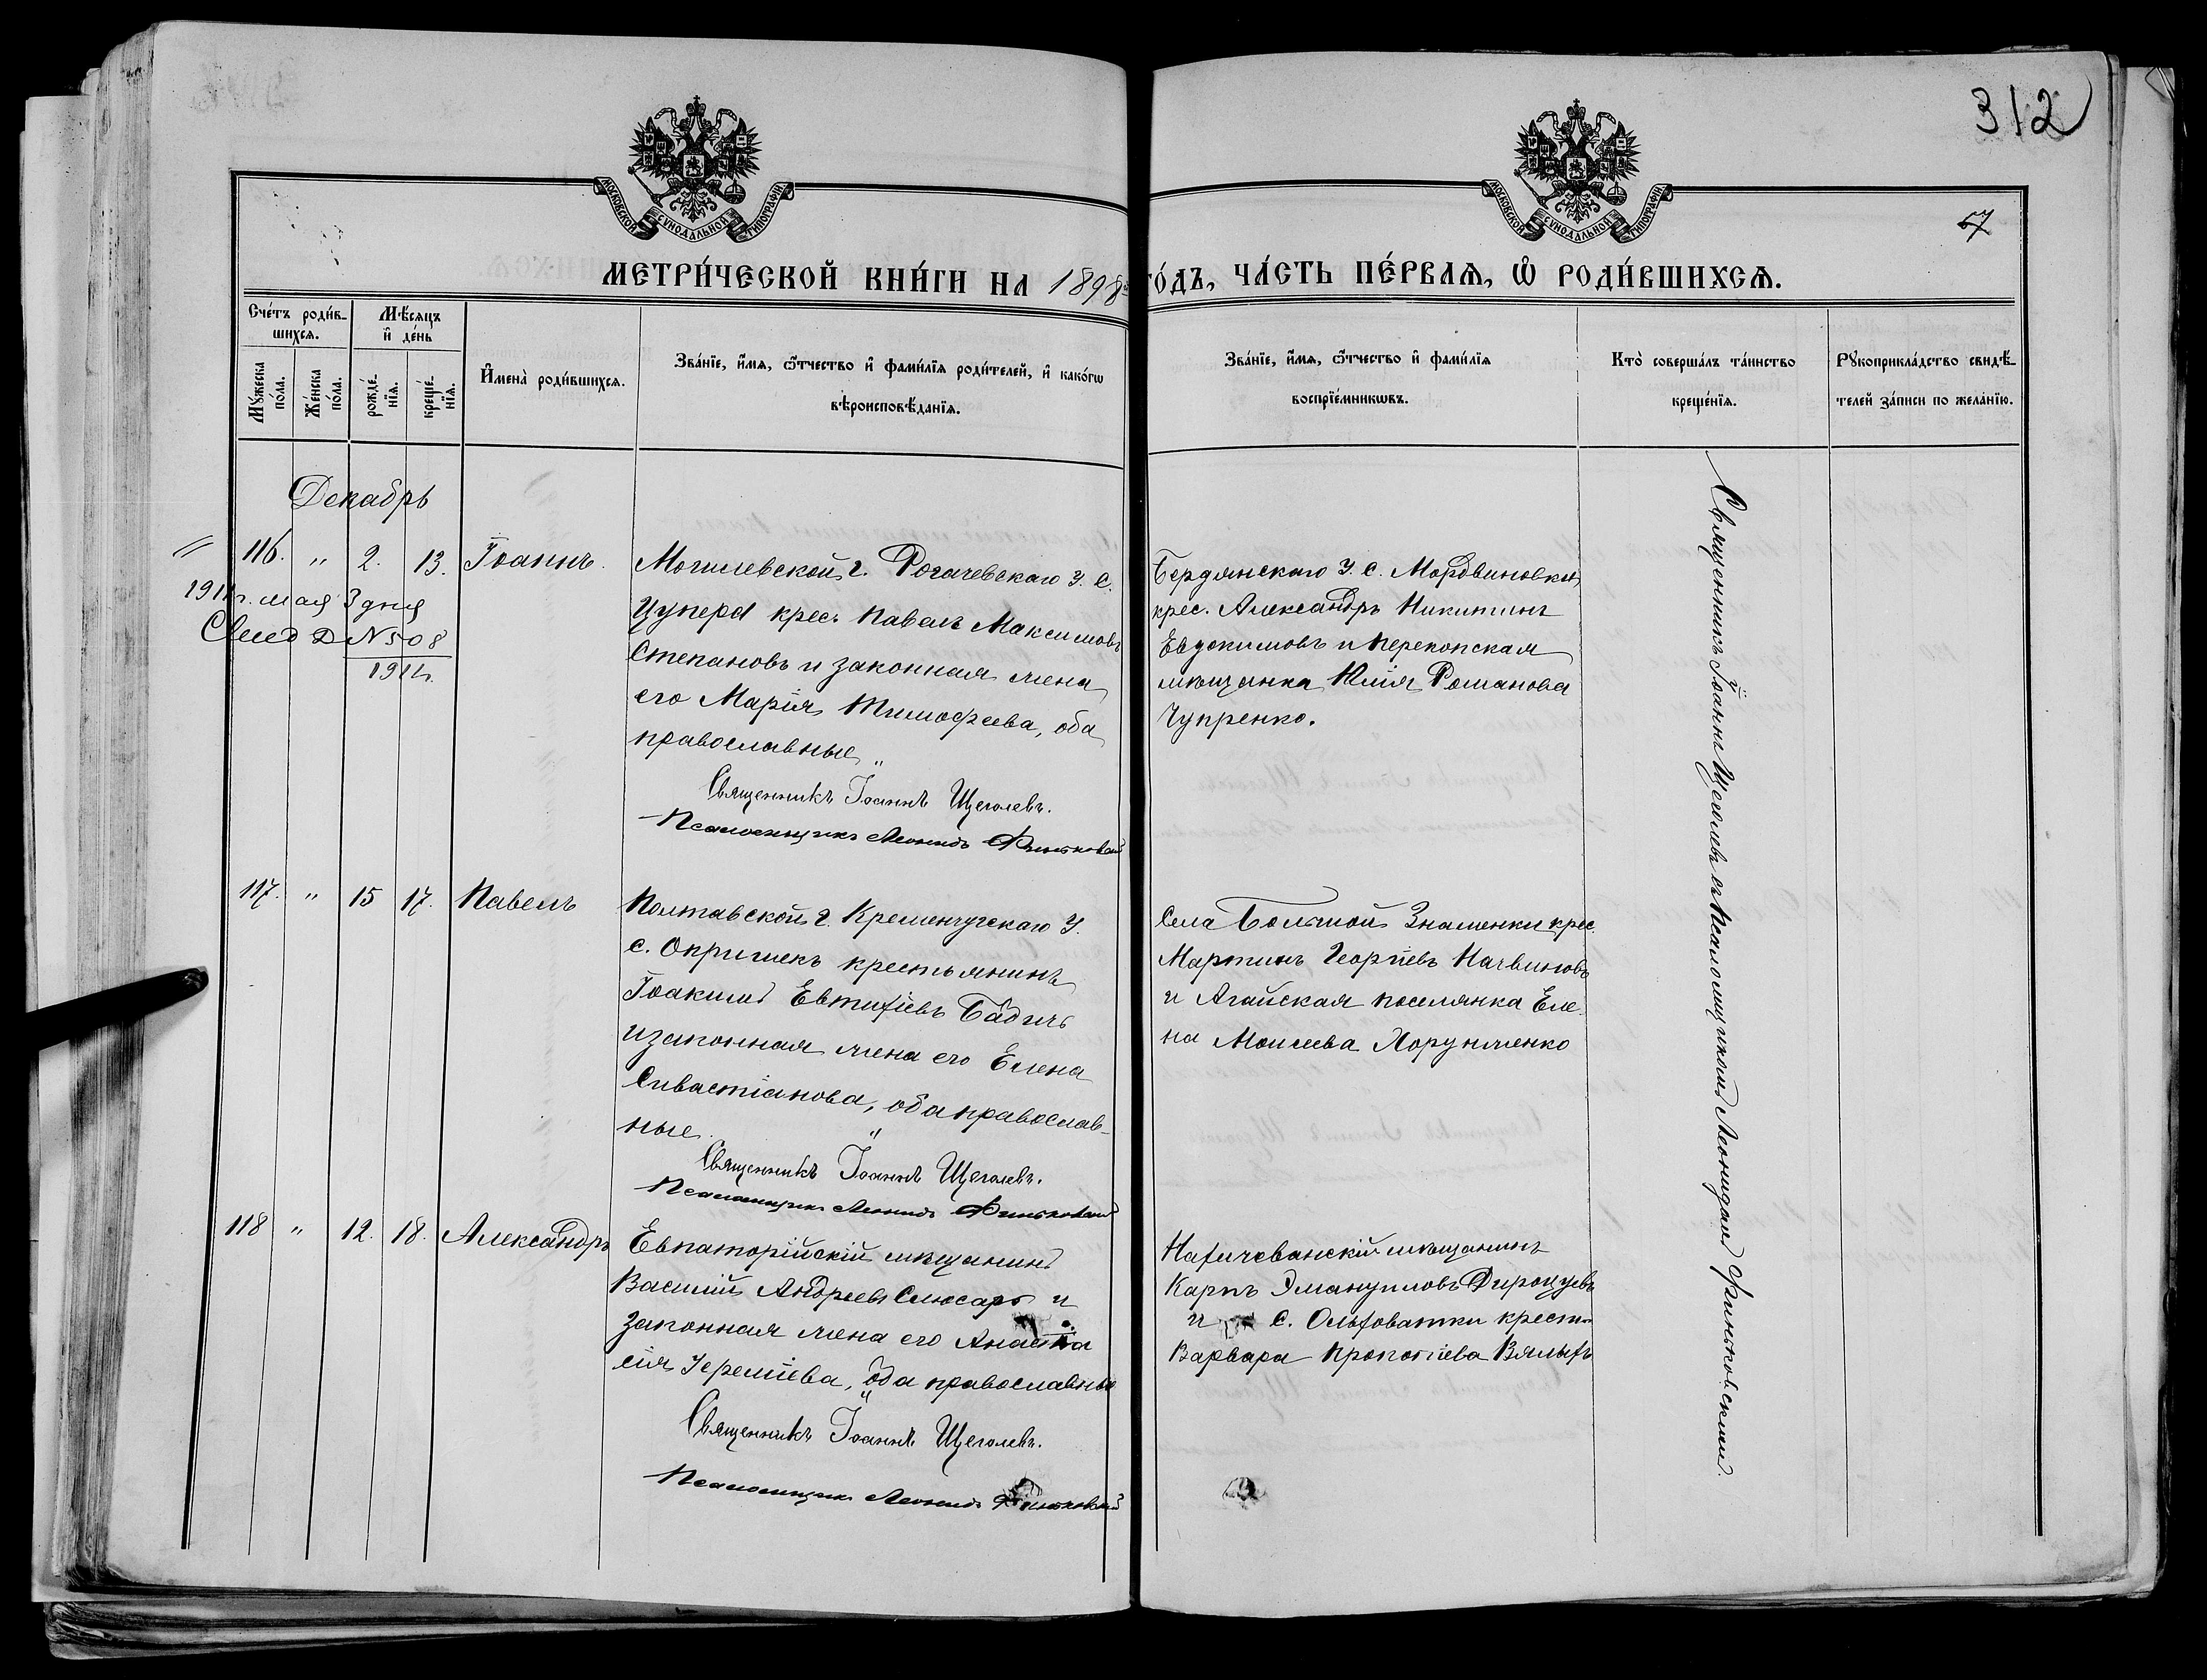 312
57
МОСКОВСКОЙ СУНОДАЛЬНОЙ ТИПОГРАФІИ
МОСКОВСКОЙ СУНОДАЛЬНОЙ ТИПОГРАФІИ
МЕТРИ́ЧЕСКОЙ КНИ́ГИ НА 1898 го́дъ, ЧА́СТЬ ПЕ́РВАѦ, Ѡ҆ РОДИ́ВШИХСѦ.
Сче́тъ роди́в-
шихсѧ.
Мꙋ́жеска по́ла.
Же́нска по́ла.
Мѣ́сѧцъ
и҆ де́нь
рожде́-
нїѧ.
креще́-
нїѧ.
И҆мена̀ роди́вшихсѧ.
Зва́нїе, и҆́мѧ, ѻ҆́тчество и҆ фами́лїѧ роди́телей, и҆ како́гѡ
вѣроисповѣ́данїѧ.
Зва́нїе, и҆́мѧ, ѻ҆́тчество и҆ фами́лїѧ
воспрїе́мникѡвъ.
Кто̀ соверша́лъ та́инство
креще́нїѧ.
Рꙋкоприкла́дство свидѣ́-
телей за́писи по жела́нїю.
Декабрь
116. " 2. 13. Іоаннъ.
1911г. мая 3 дня
№ 508
1911г.
Могилевской г. Рогачевскаго У. с.
Цупера крес. Павелъ Максимовъ
Степановъ и законная жена
его Марія Тимофеева, оба
православные "
Священникъ Іоаннъ Щеголевъ.
Псаломщикъ Леонидъ Финьковскій
Бердянскаго У. с. Мордвиновки,
крес. Александръ Никитинъ
Евдокимовъ и Перекопская
мѣщанка Юлія Романова
Чупренко.
117. " 15 17. Павелъ
Полтавской г. Кременчугскаго У.
с. Опришекъ крестьянинъ
Іоакимъ Евтихіевъ Бабичъ
и законная жена его Елена
Сивастіанова, оба православ-
ные. "
Священникъ Іоаннъ Щеголевъ.
Псаломщикъ Леонидъ Финьковскій
Села Большой Знаменки крес.
Мартинъ Георгіевъ
и Агайская поселянка Еле-
на Моисеева Хорунженко
118 " 12. 18. Александръ
Евпаторійскій мѣщанинъ
Василій Андреевъ Слюсарь и
законная жена его Анаста
сія Іереміева, оба православные
"
Священникъ Іоаннъ Щеголевъ.
Псаломщикъ Леонидъ Финьковскій
Нахичеванскій мѣщанинъ
Карпъ Эмануиловъ
и с. Ольховатки крест.
Варвара Прокопіева Вялыхъ
Священникъ Іоаннъ Щеголевъ съ Псаломщикомъ Леонидомъ Финьковскимъ.